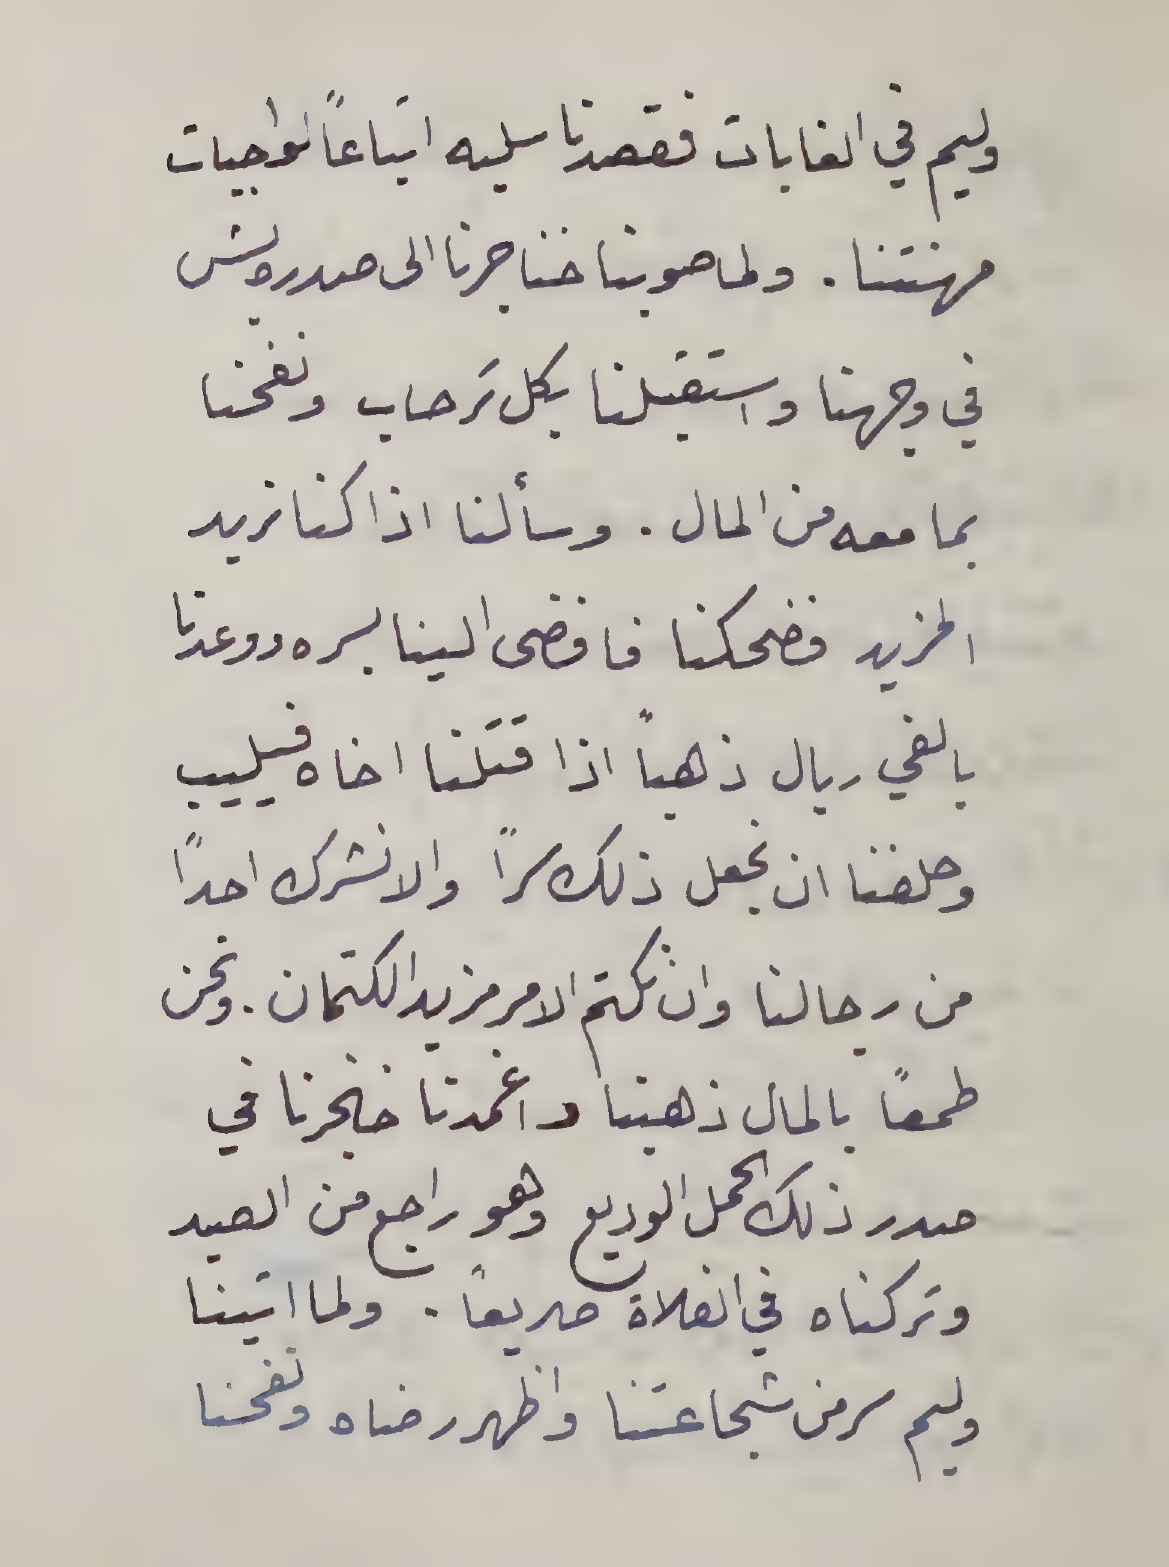 وليم في الغابات فقصدنا سلبه اتباعاً لواجبات
مهنتنا . ولما صوبنا خناجرنا الى صدره بش
في وجهنا واستقبلنا بكل تَرحاب ونفحنا
بما معه من المال . وسألنا اذا كنا نريد
المزيد فضحكنا فافضى الينا بسره ووعدنا
بالفي ريال ذهباً اذا قتلنا اخاه فيليب
وحلفنا ان نجعل ذلك سراً والا نشرك احداً
من رجالنا وان نكتم الامر مزيد الكتمان . ونحن
طمعاً بالمال ذهبنا واغمدنا خنجرنا في
صدر ذلك الحمل الوديع وهو راجع من الصيد
وتركناه في الفلاة صريعاً . ولما اتينا
وليم سر من شجاعتنا واظهر رضاه ونفحنا